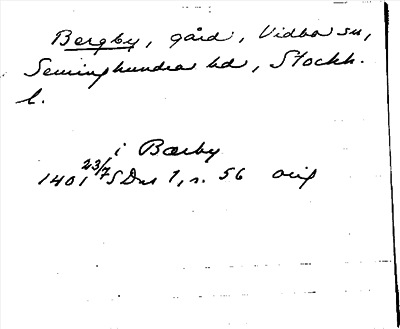 Bergby, gård, Vidbo sn,
Seminghundra hd, Stockh.
l.
i Bærby
1401 23/7 SDns 1, s. 56 orig